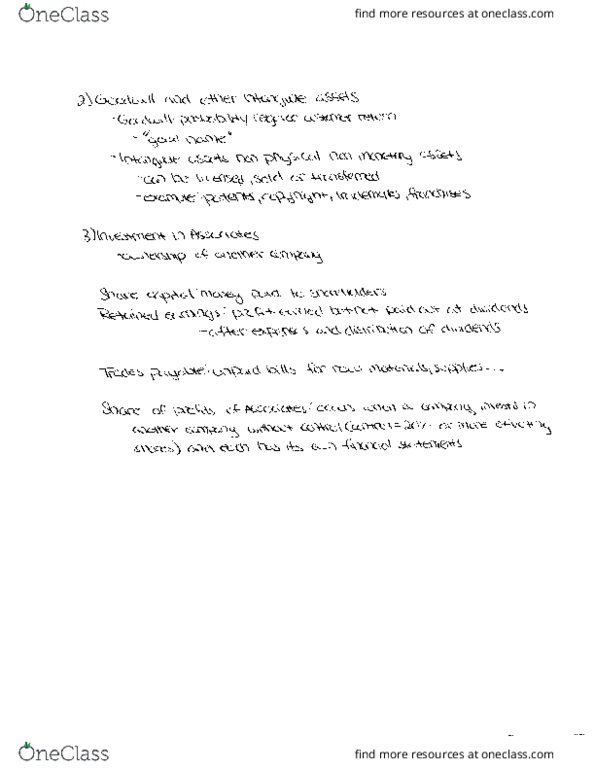 OneClass
find more resources at oneclass.com
2) Goodwill and other Intangible assets
-Goodwill: probability regular customer return
-"good name"
-Intangible assets non physical non monetary assets
-can be licensed, sold or transferred
-example: patents, copyright, trademarks, franchises
3) Investment in Associates
-ownership of another company
Share capital: money paid to shareholders
Retained earnings: profit earned but not paid out at dividends
-after expenses and distribution of dividends
Trades payable: unpaid bills for raw materials, supplies...
Share of profits of Associates: occurs when a company invests in
another company without control (control = 20% or more of voting
shares) and each has its own financial statements
OneClass
find more resources at oneclass.com